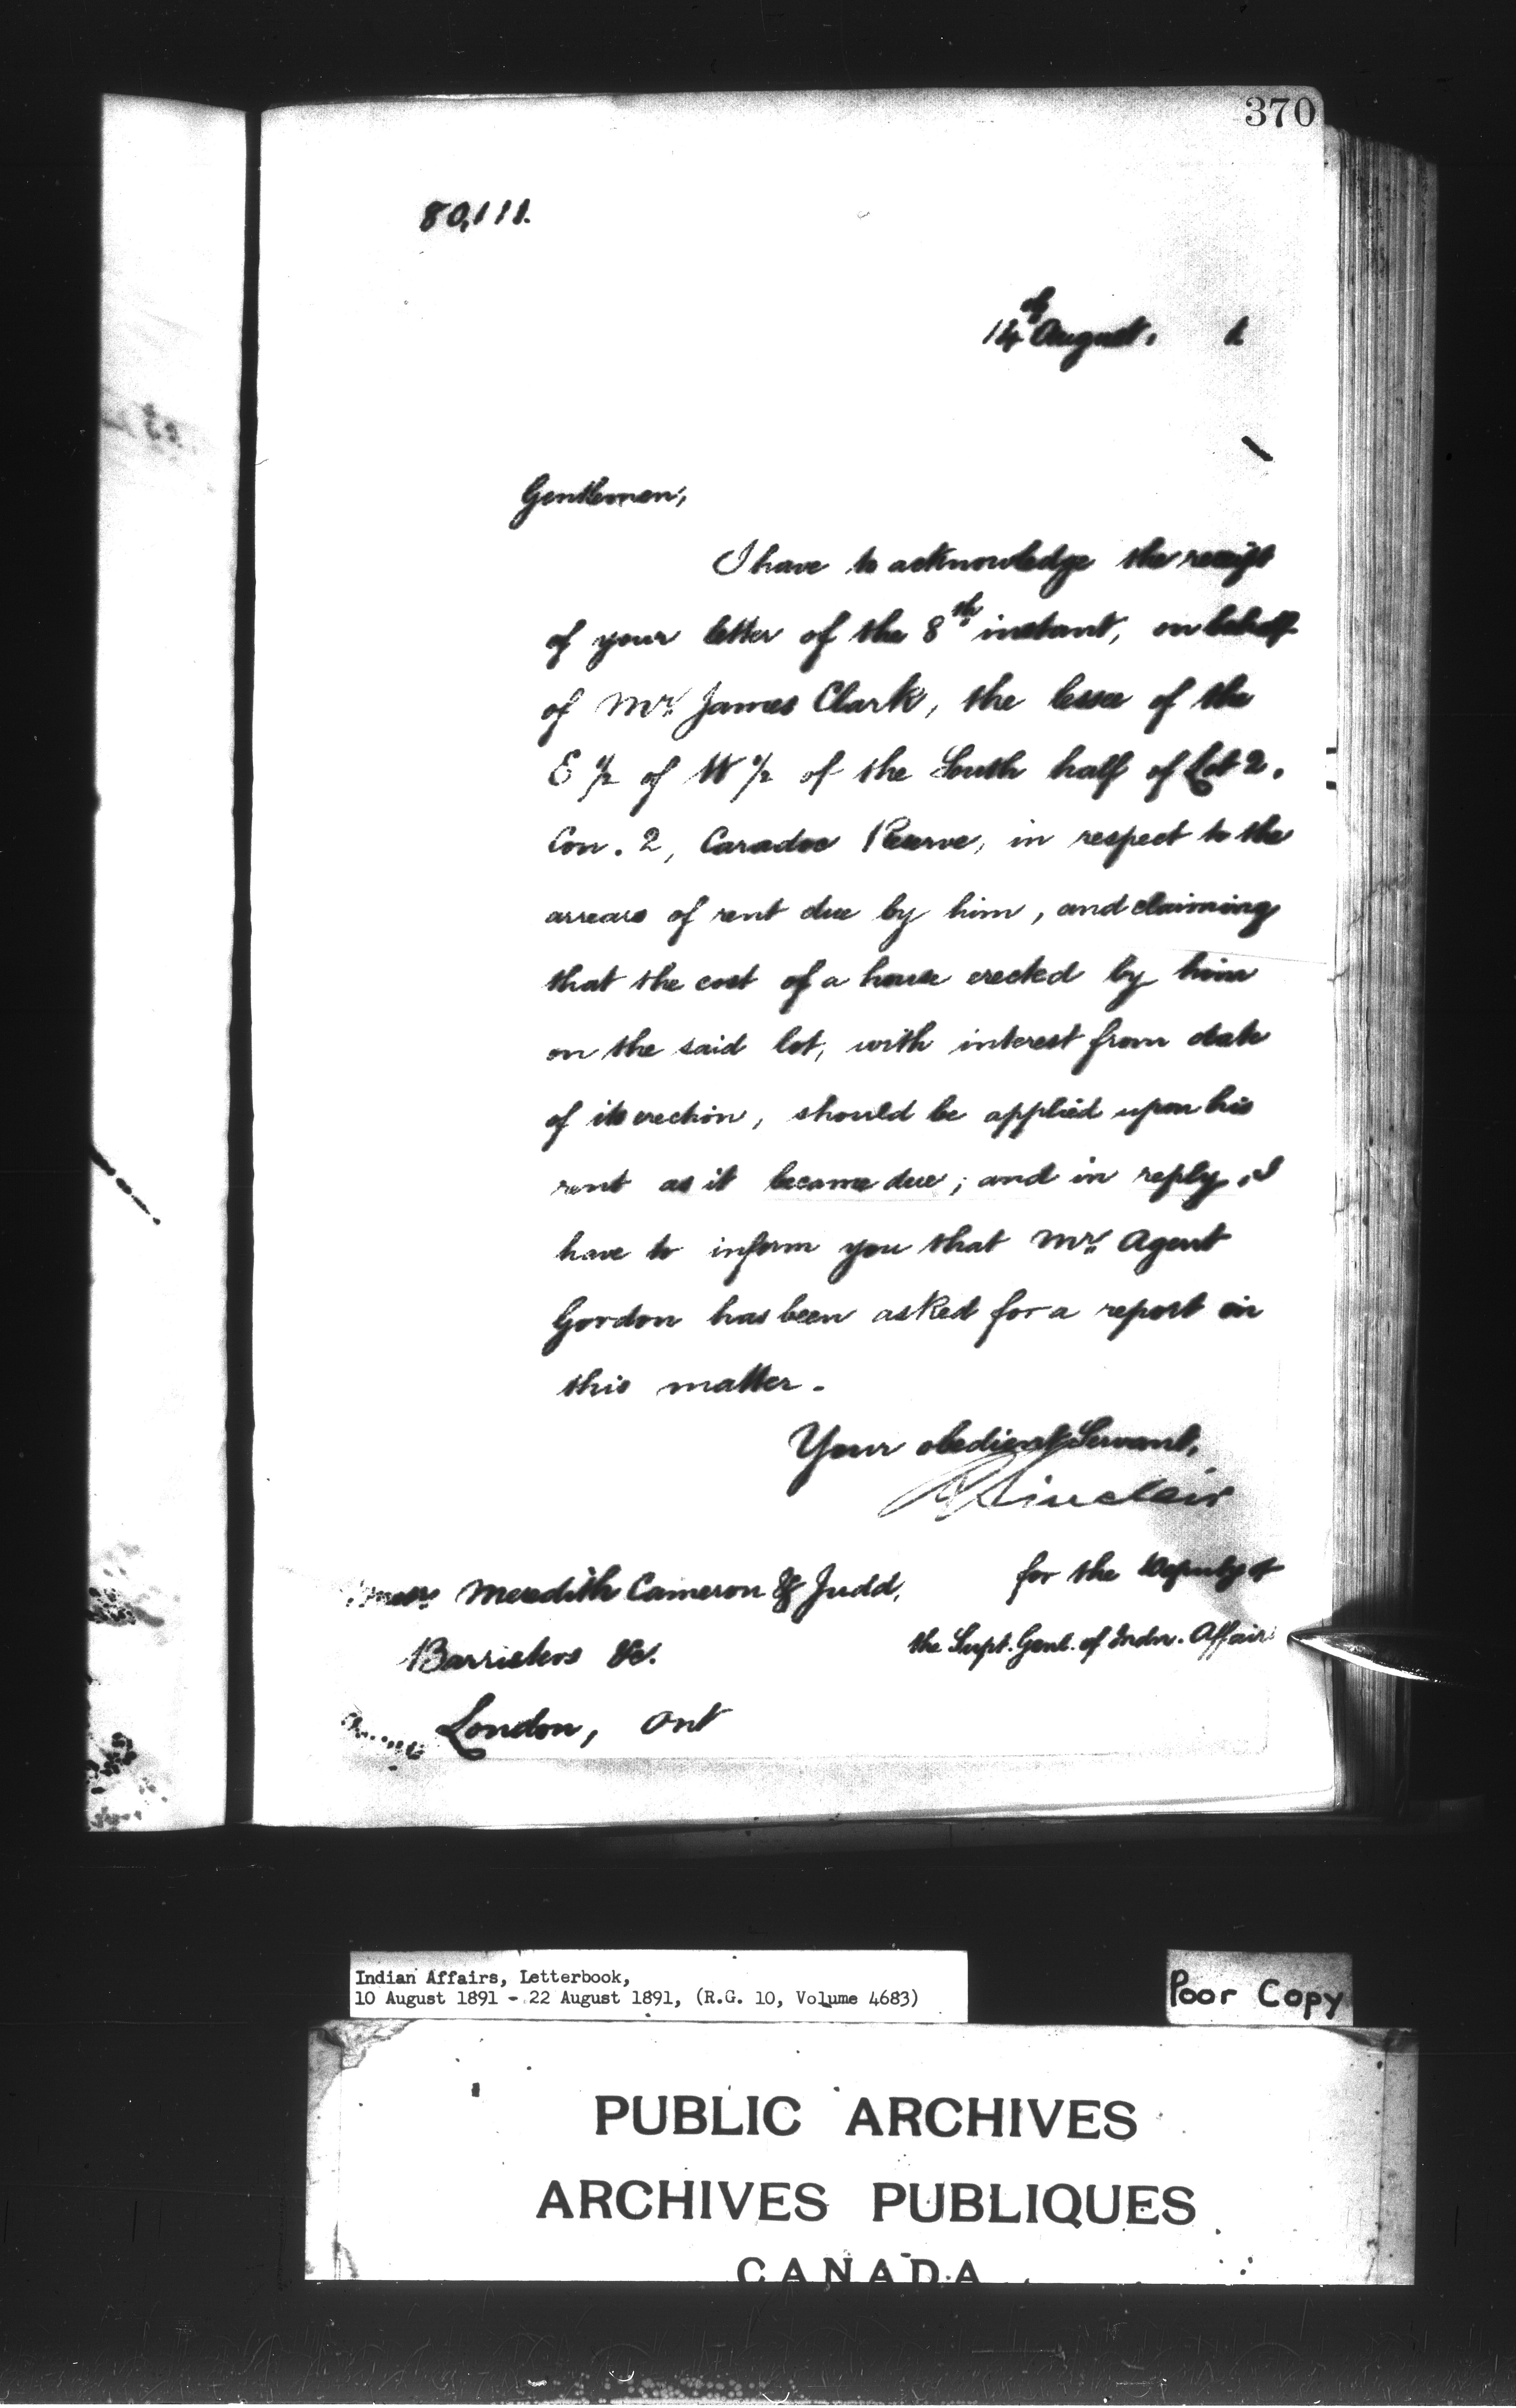 370
80,111.
14th August, 1.
Gentlemen,
I have to acknowledge the receipt
of your letter of the 8th instant, on behalf
of Mr. James Clark, the lessee of the
E ½ of W ½ of the South half of Lot 2.
Con. 2, Caradoc Reserve, in respect to the
arrears of rent due by him, and claiming
that the cost of a house erected by him
on the said lot, with interest from date
of its erection, should be applied upon his
rent as it became due; and in reply, I
have to inform you that Mr. Agent
Gordon has been asked for a report in
this matter.
Your obedient Servant,
Sinclair
for the Deputy of
the Supt. Genl. of Indn. Affairs
Messrs. Meredith Cameron & Judd,
Barristers &c.
London, Ont
Indian Affairs, Letterbook,
10 August 1891 - 22 August 1891, (R.G. 10, Volume 4683)
Poor Copy
PUBLIC ARCHIVES
ARCHIVES PUBLIQUES
CANADA